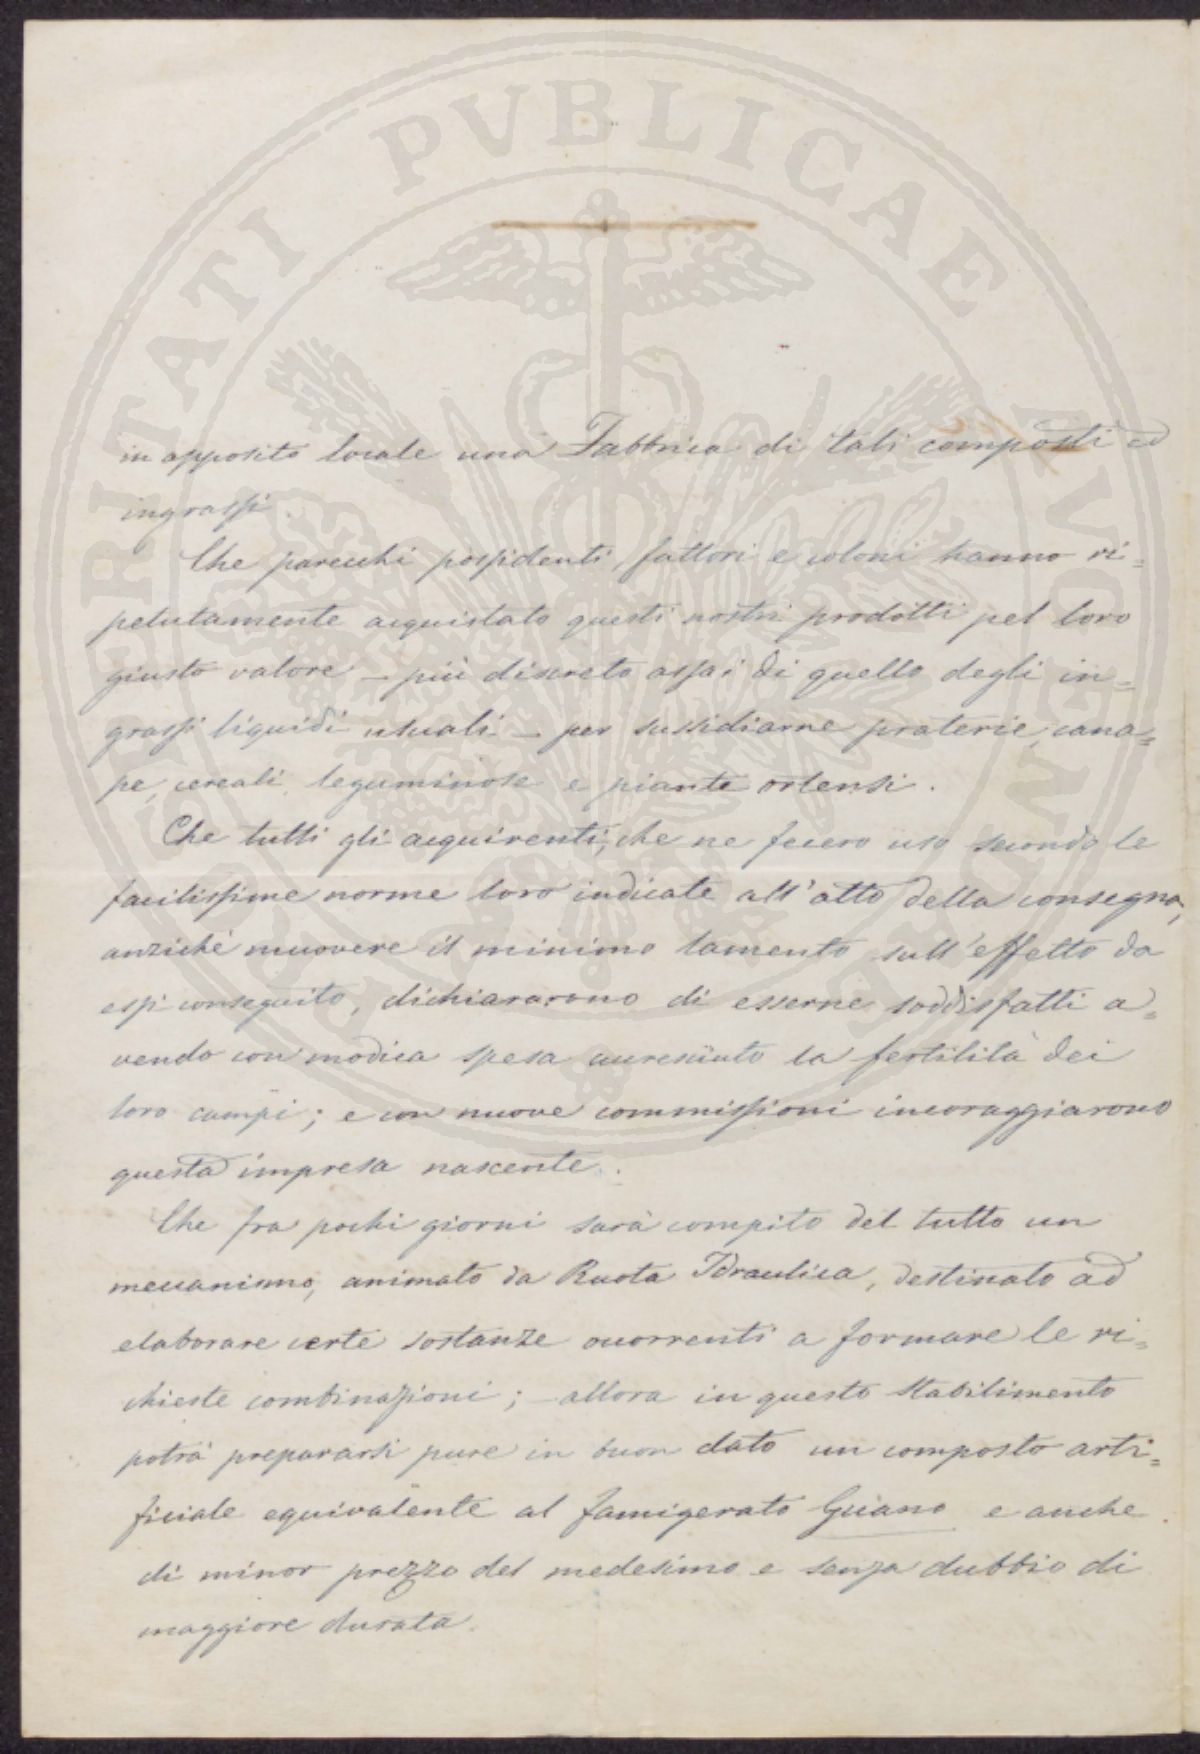 in apposito locale una Fabbrica di tali composti ed
ingrassi.
Che parecchi possidenti fattori e coloni hanno ri=
petutamente acquistato questi nostri prodotti pel loro
giusto valore – più discreto assai di quello degli in=
grassi liquidi usuali – per sussidiarne praterie, cana=
pe, cereali, leguminose e piante ortensi.
Che tutti gli acquirenti, che ne fecero uso secondo le
facilissime norme loro indicate all'atto della consegna,
anzichè muovere il minimo lamento sull'effetto da
essi conseguito, dichiararono di esserne soddisfatti a=
vendo con modica spesa accresciuto la fertilità dei
loro campi; e con nuove commissioni incoraggiarono
questa impresa nascente.
Che fra pochi giorni sarà compito del tutto un
meccanismo, animato da Ruota Idraulica, destinato ad
elaborare certe sostanze occorrenti a formare le ri=
chieste combinazioni; – allora in questo stabilimento
potrà prepararsi pure in buon dato un composto arti=
ficiale equivalente al famigerato Guano e anche
di minor prezzo del medesimo e senza dubbio di
maggiore durata.